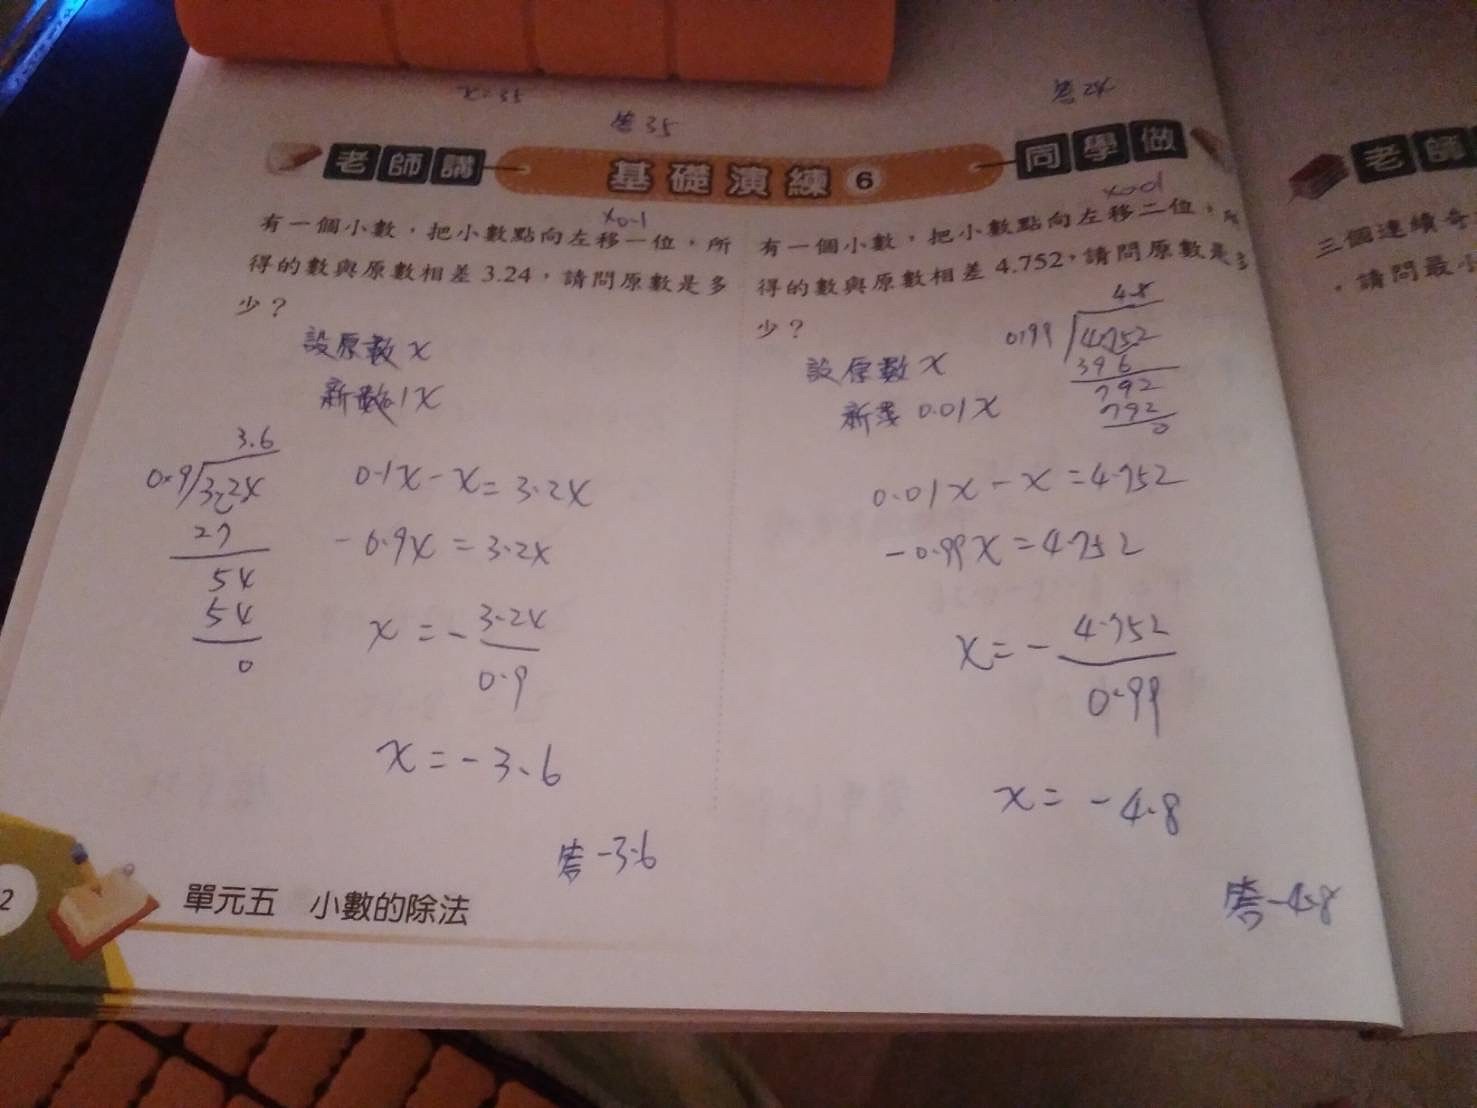 x=35
答35
答24
老師講
基礎演練 6
同學做
老師
x0.1
有一個小數，把小數點向左移一位，所
得的數與原數相差3.24，請問原數是多
少？
設原數x
新數0.1x
3.6
0.9
3.24
27
54
54
0
0.1x-x=3.24
-0.9x=3.24
x=-3.24/0.9
x=-3.6
答-3.6
有一個小數，把小數點向左移二位，所
得的數與原數相差4.752，請問原數是多
少？
設原數x
0.01x
4.8
4.752
396
792
792
0
0.01x-x=4.752
-0.99x=4.752
x=-4.752/0.99
x=-4.8
答-4.8
三個連續奇
，請問最小
2
單元五 小數的除法